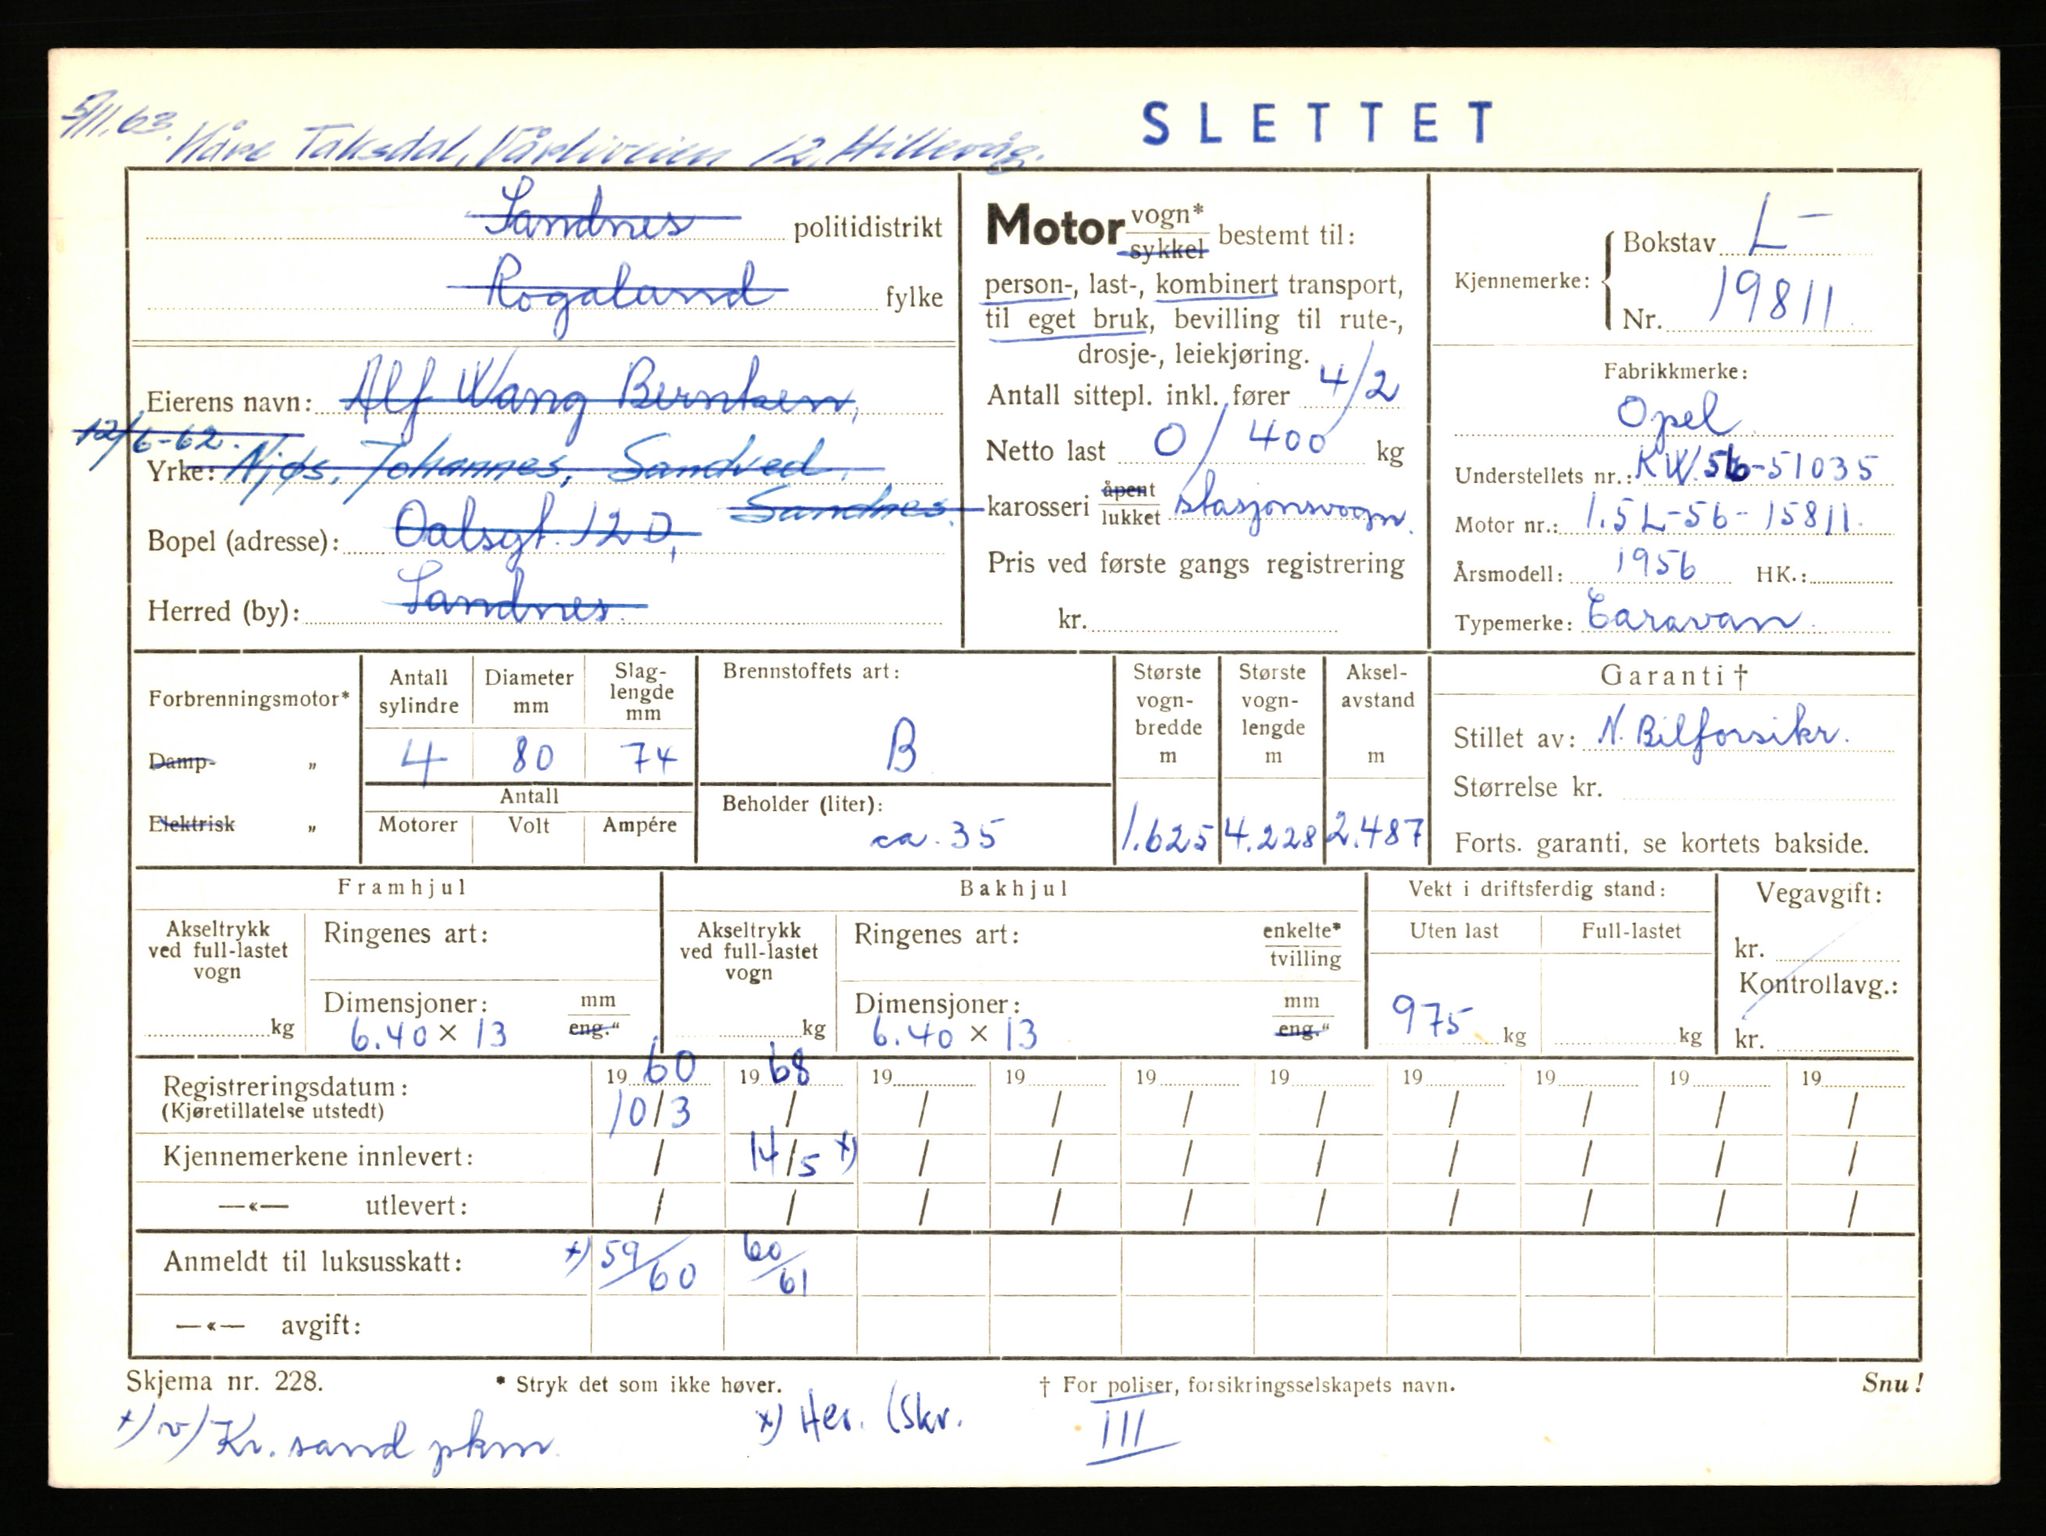 SLETTET
5/11.63. Kåre Taksdal, Vårliveien 12, Hillevåg.
Sandnes politidistrikt
Rogaland fylke
Eierens navn: Alf Wang Berntsen,
12/6-62.
Yrke: Njøs, Johannes, Sandved,
Sandnes.
Bopel (adresse): Oalsgt. 12 D,
Herred (by): Sandnes.
Motor vogn* / sykkel bestemt til:
person-, last-, kombinert transport,
til eget bruk, bevilling til rute-,
drosje-, leiekjøring.
Antall sittepl. inkl. fører 4/2
Netto last 0/400 kg
karosseri åpent / lukket stasjonsvogn.
Pris ved første gangs registrering
kr.
Kjennemerke: { Bokstav L-
Nr. 19811
Fabrikkmerke:
Opel
Understellets nr.: KW.56-51035
Motor nr.: 1.5L-56-15811.
Årsmodell: 1956 HK.:
Typemerke: Caravan.
Forbrenningsmotor*
Damp- „
Elektrisk „
Antall sylindre Diameter mm Slag-lengde mm
4 80 74
Antall
Motorer Volt Ampére
Brennstoffets art:
B
Beholder (liter):
ca. 35
Største vogn-bredde m
1.625
Største vogn-lengde m
4.228
Aksel-avstand m
2.487
Garanti †
Stillet av: N. Bilforsikr.
Størrelse kr.
Forts. garanti, se kortets bakside.
Framhjul
Akseltrykk ved full-lastet vogn
kg
Ringenes art:
Dimensjoner: mm / eng."
6.40 × 13
Bakhjul
Akseltrykk ved full-lastet vogn
kg
Ringenes art: enkelte* / tvilling
Dimensjoner: mm / eng."
6.40 × 13
Vekt i driftsferdig stand:
Uten last Full-lastet
975 kg kg
Vegavgift:
kr.
Kontrollavg.:
kr.
Registreringsdatum: 1960 1968 19 19 19 19 19 19 19 19
(Kjøretillatelse utstedt) 10/3 / / / / / / / / /
Kjennemerkene innlevert: / 14/5 x) / / / / / / / /
—«— utlevert: / / / / / / / / / /
Anmeldt til luksusskatt: +) 59/60 60/61
—«— avgift:
Skjema nr. 228. * Stryk det som ikke høver. † For poliser, forsikringsselskapets navn. Snu!
+) v) Kr. sand pkm x) Her. (Skr. III